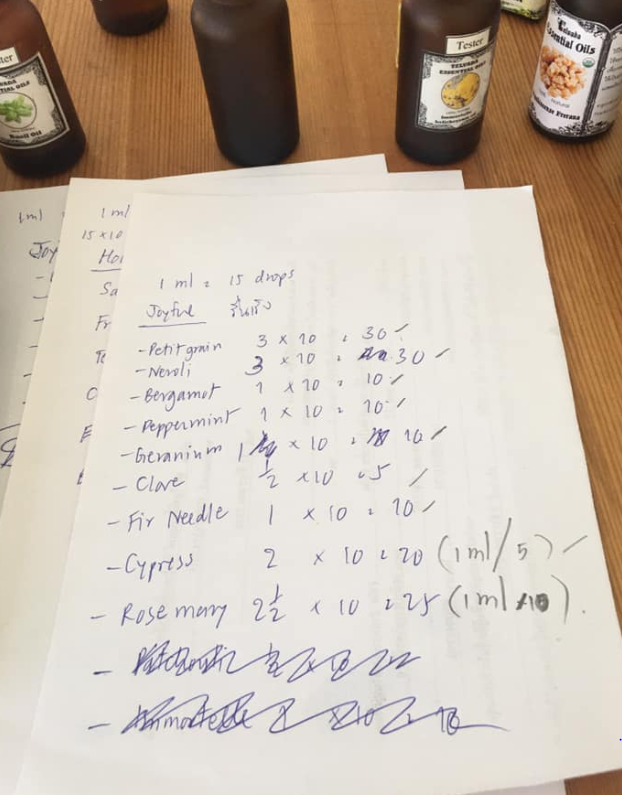 Tester
Essential Oils
Basil Oil
TELUADA
ESSENTIAL OILS
Natural
1 ml
1 ml
15 x 10
Joy
Sa
Fr
1 ml = 15 drops
Joyful รื่นเริง
- Petitgrain 3 x 10 = 30 ✓
- Neroli 3 x 10 = 30 ✓
- Bergamot 1 x 10 = 10 ✓
- Peppermint 1 x 10 = 10 ✓
- Geranium 1 x 10 = 10 ✓
- Clove ½ x 10 = 5 ✓
- Fir Needle 1 x 10 = 10 ✓
- Cypress 2 x 10 = 20 (1 ml/5) ✓
- Rosemary 2½ x 10 = 25 (1 ml x10).